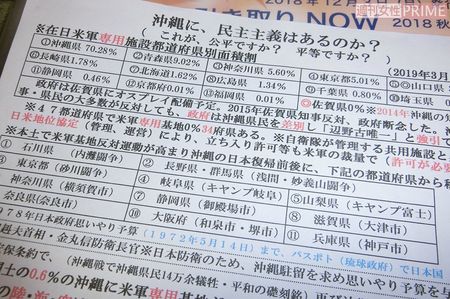 週刊女性PRIME
2018年12月
引き取り NOW
2018 秋
沖縄に、民主主義はあるのか?
(これが、公平ですか? 平等ですか?)
※在日米軍専用施設都道府県別面積割
(2019年3月
①沖縄県 70.28% ②青森県9.02% ③神奈川県 5.60% ④東京都5.01% ⑤山口県
⑥長崎県1.78% ⑦北海道1.62% ⑧広島県 1.34% ⑨千葉県 0.80% ⑩埼玉県
⑪静岡県 0.46% ⑫福岡県 0.01% ⑬佐賀県0%※2014年沖縄の
佐賀県にはオスプレイ配備予定。2015年佐賀県知事反対、政府断念した。沖
・県民の大多数が反対しても、政府は沖縄県民を差別し「辺野古唯一」と強引
※47都道府県で米軍専用基地0%34府県ある。※自衛隊が管理する共用施設と
日米地位協定(管理、運営)により、立ち入り許可等も米軍の裁量で(許可が必要
※本土で米軍基地反対運動が高まり沖縄の日本復帰前後に、下記の都道府県から移
① 石川県 (内灘闘争) ② 長野県・群馬県(浅間・妙義山闘争)
③ 東京都(砂川闘争) ④ 岐阜県(キャンプ岐阜) ⑤山梨県(キャンプ富士)
神奈川県(横須賀市) ⑦ 静岡県(御殿場市) ⑧ 滋賀県(大津市)
奈良県(奈良市) ⑩ 大阪府(和泉市・堺市) ⑪ 兵庫県(神戸市)
978年日本政府思いやり予算(1972年5月14日)まで、パスポト(琉球政府)で日本国
夫首相・金丸信防衛長官※日本防衛のため、沖縄駐留を求め思いやり予算を与
安保条約で、(沖縄戦で沖縄県民14万余犠牲・平和の礎刻銘)
国土の0.6%の沖縄に米軍専用基地